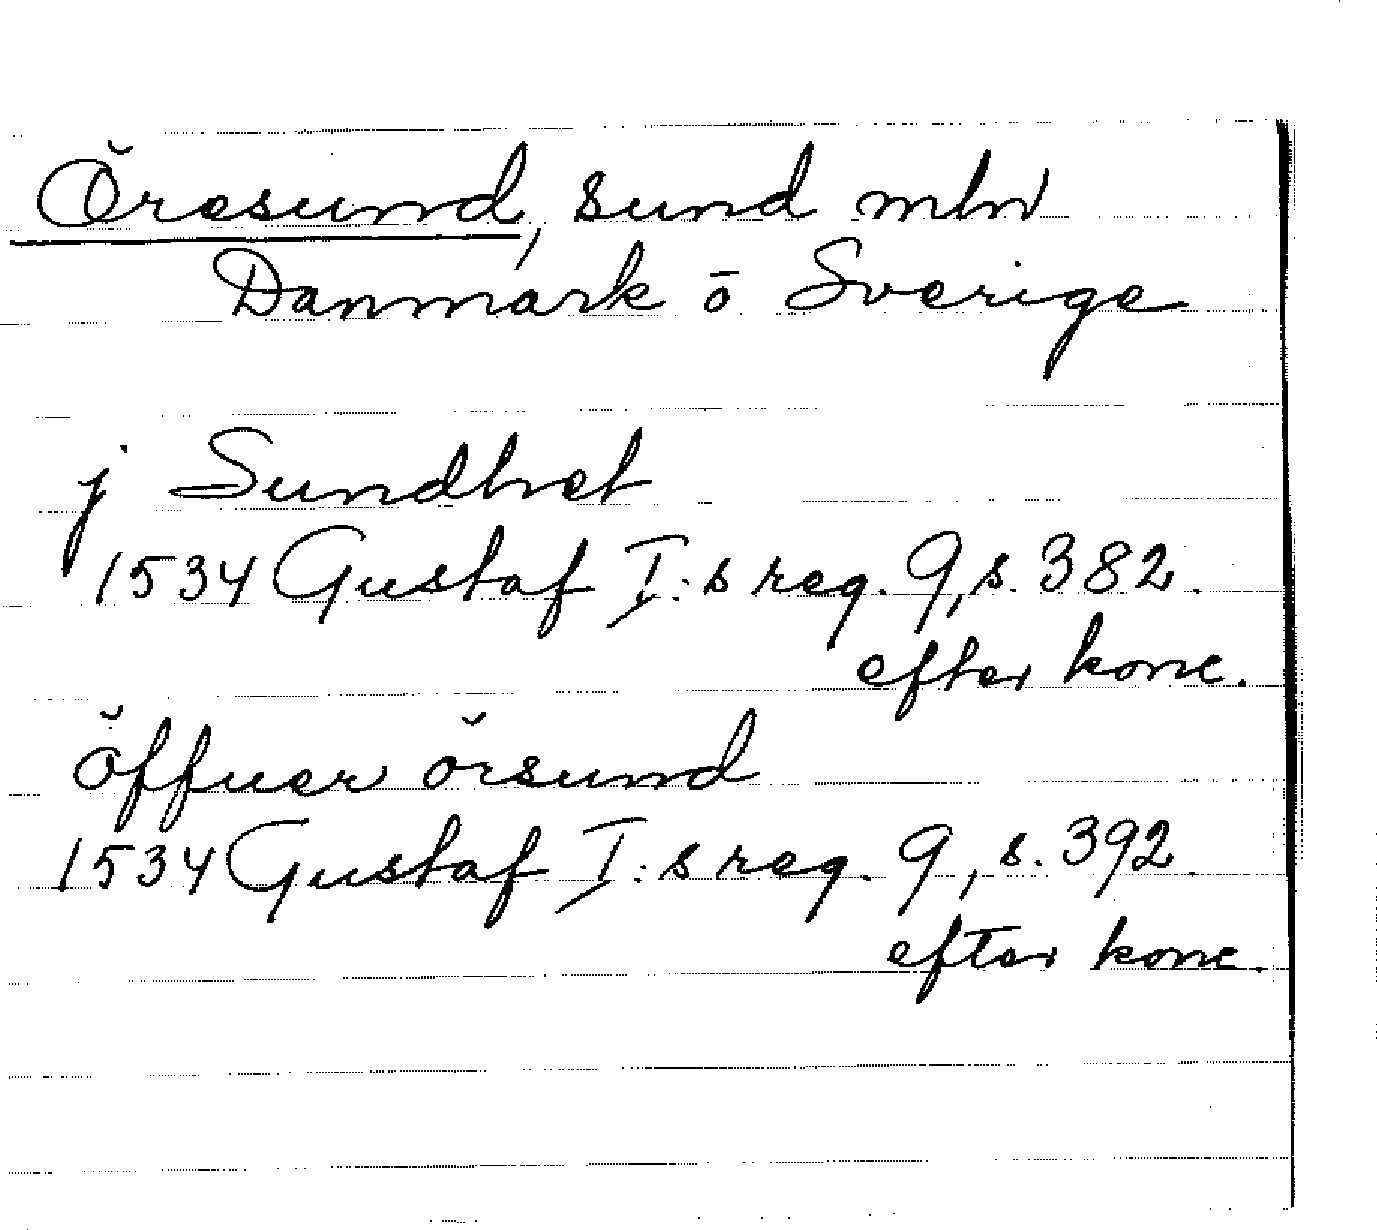 Öresund, sund mln
Danmark o Sverige
j Sundhet
1534 Gustaf I:s reg. 9, s. 382.
efter konc.
öffuer örsund
1534 Gustaf I:s reg. 9, s. 392.
efter konc.